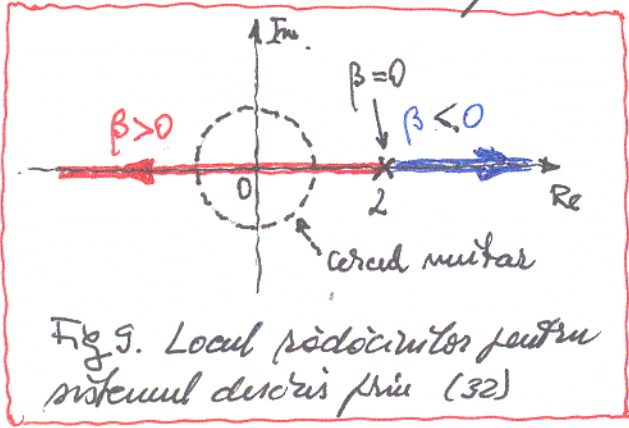 Im.
β=0
β>0
β<0
0
2
Re
cercul unitar
Fig 9. Locul rădăcinilor pentru
sistemul descris prin (32)